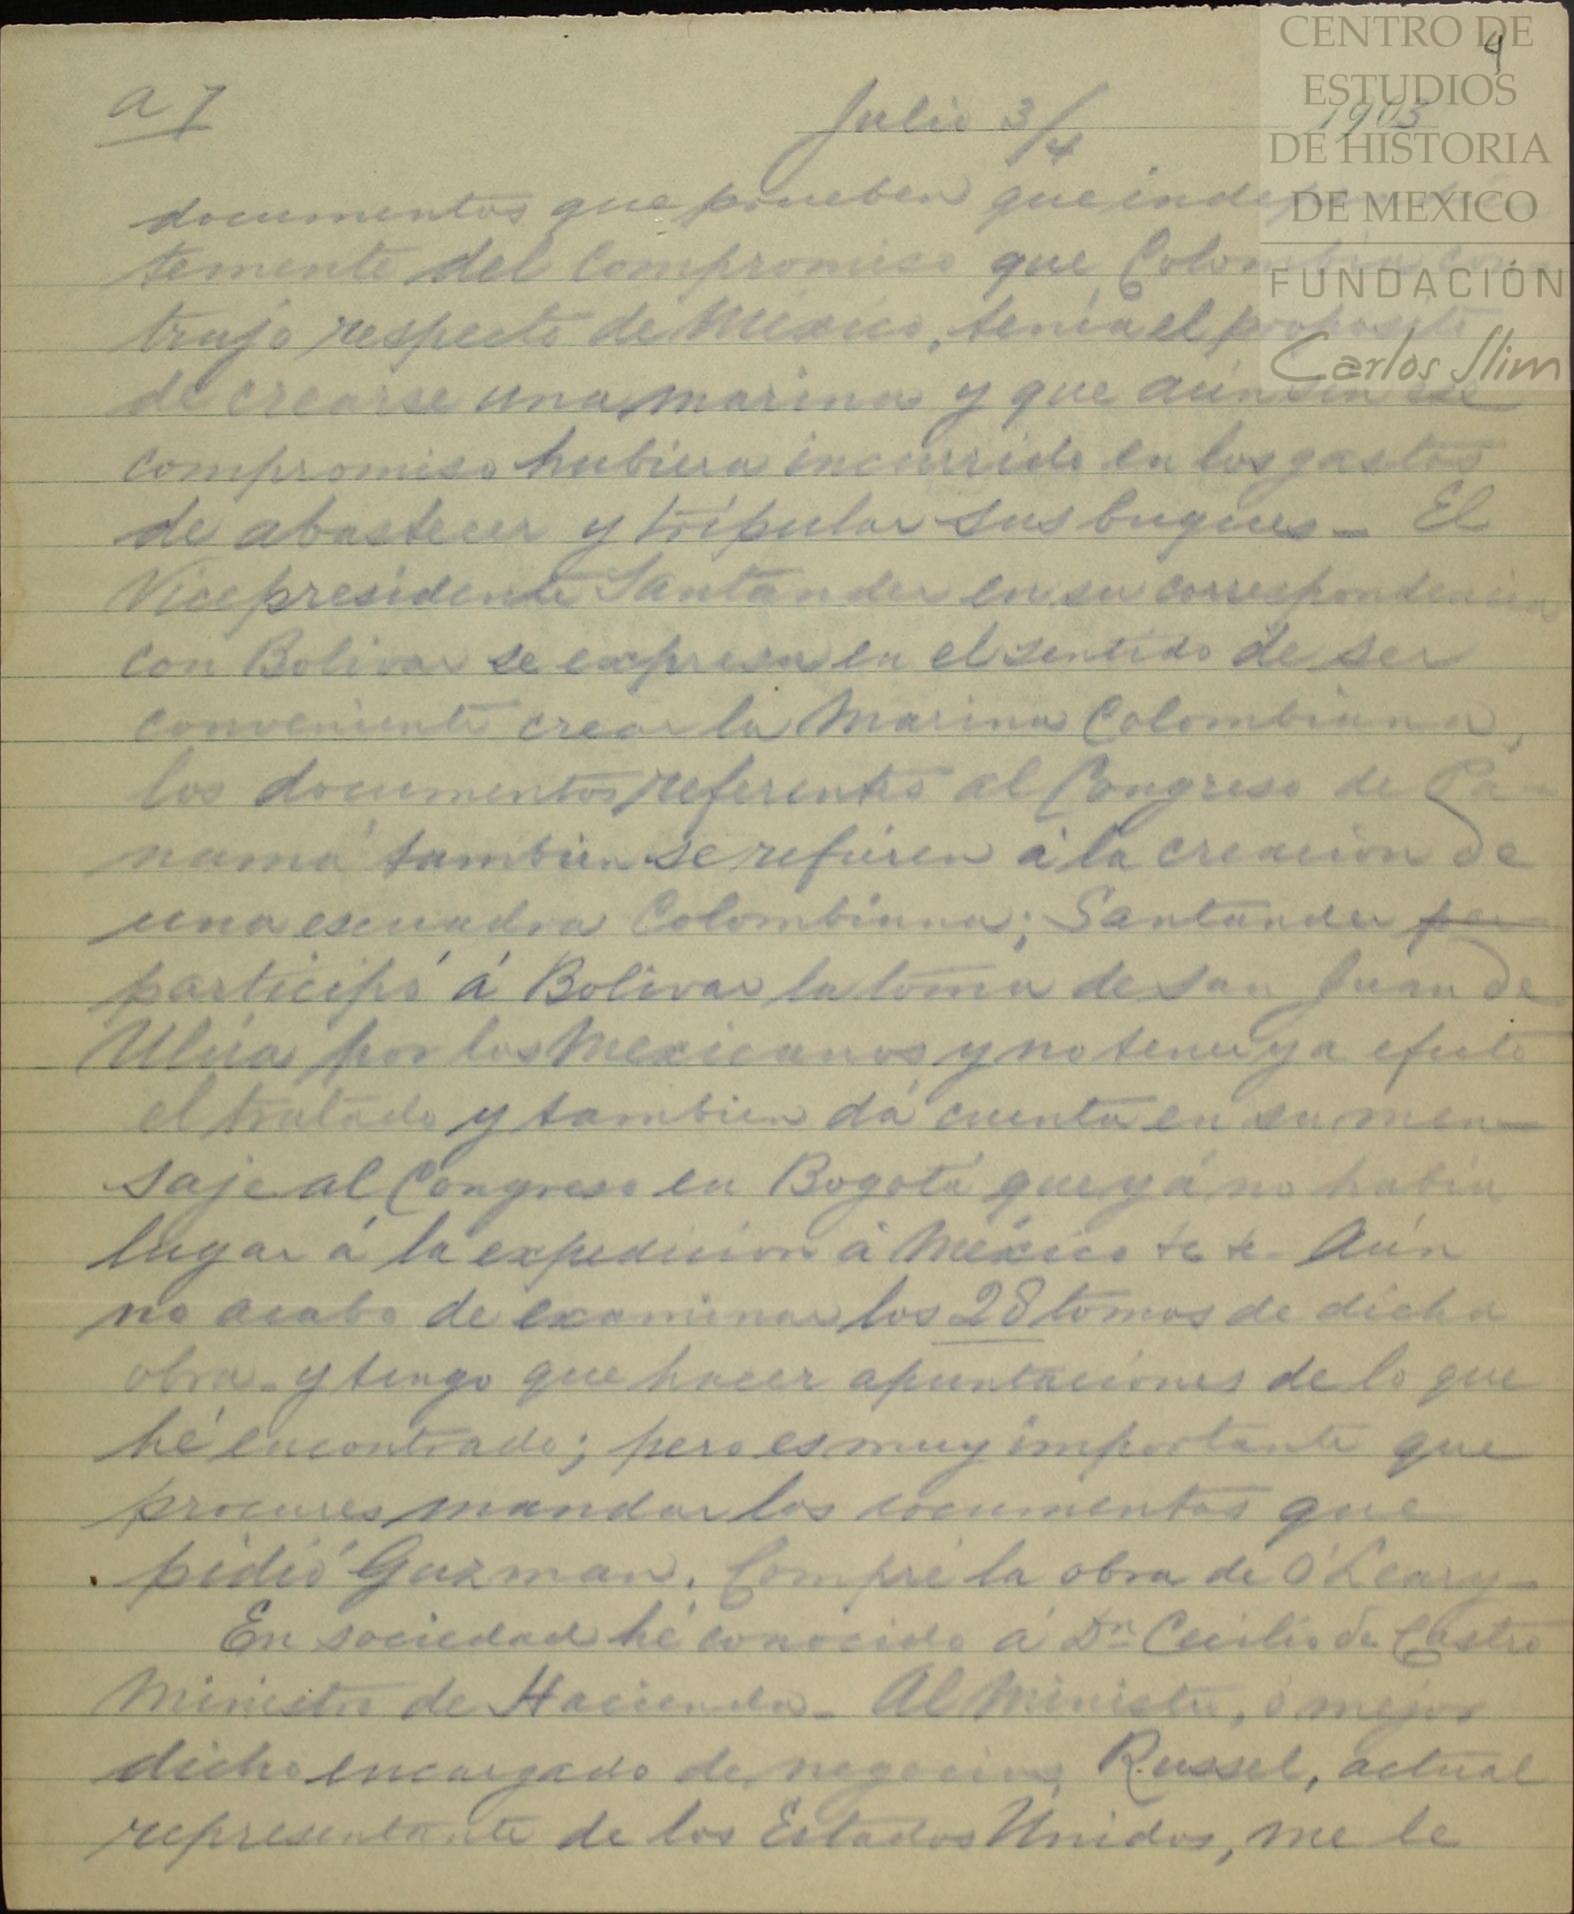 CENTRO DE
ESTUDIOS
DE HISTORIA
DE MEXICO
FUNDACIÓN
Carlos Slim
4
a 7 Julio 3/4 1903
documentos que prueben que indepen
temente del Compromiso que Colombia con
trajo respecto de México, tenía el proposito
de crearse una marina y que aún sin ese
compromiso hubiera incurrido en los gastos
de abastecer y tripular sus buques_ El
Vicepresidente Santander en su correspondencia
con Bolivar se expresa en el sentido de ser
conveniente crear la Marina Colombiana,
los documentos referentes al Congreso de Pa-
namá tambien se refieren á la creacion de
una escuadra Colombiana; Santander par
participó á Bolivar la toma de San Juan de
Ulúa por los Mexicanos y no tener ya efecto
el tratado y tambien dá cuenta en su men-
saje al Congreso en Bogotá que yá no habia
lugar á la expedicion á México &c &c- Aún
no acabo de examinar los 28 tomos de dicha
obra_ y tengo que hacer apuntaciones de lo que
hé encontrado; pero es muy importante que
procures mandar los documentos que
pidió Guzman. Compré la obra de O'Leary_
En sociedad hé conocido á Dn Cecilio de Castro
Ministro de Hacienda_ Al Ministro, ó mejor
dicho encargado de negocios, Russel, actual
representante de los Estados Unidos, me le